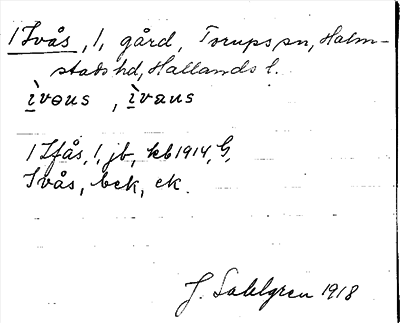 1 Ivås, 1, gård, Torups sn, Halm-
stads hd, Hallands l.
ìvøus, ìvaus
1 Ifås, 1, jb, kb 1914, G,
Ivås, bck, ck.
J. Sahlgren 1918